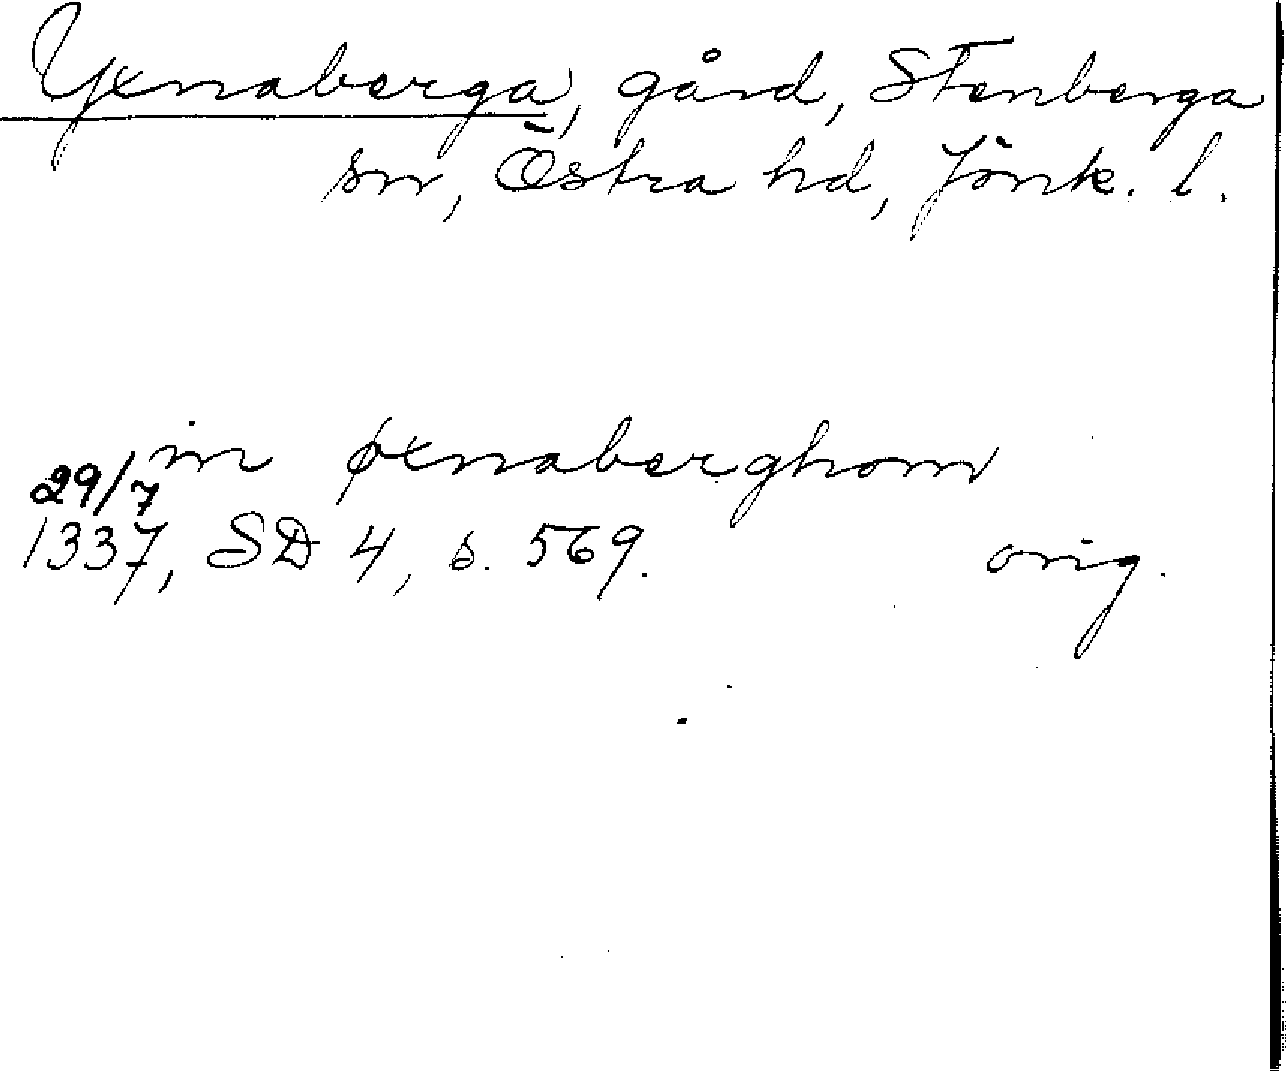 Yxnaberga, gård, Stenberga
sn, Östra hd, Jönk. l.
in øxnaberghom
29/7
1337, SD 4, s. 569. orig.